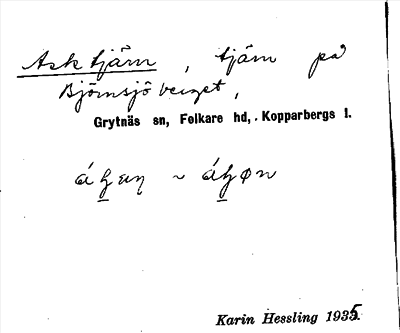 Asktjärn, tjärn på
Björnsjöberget,
Grytnäs sn, Folkare hd, Kopparbergs l.
Karin Hessling 1935.